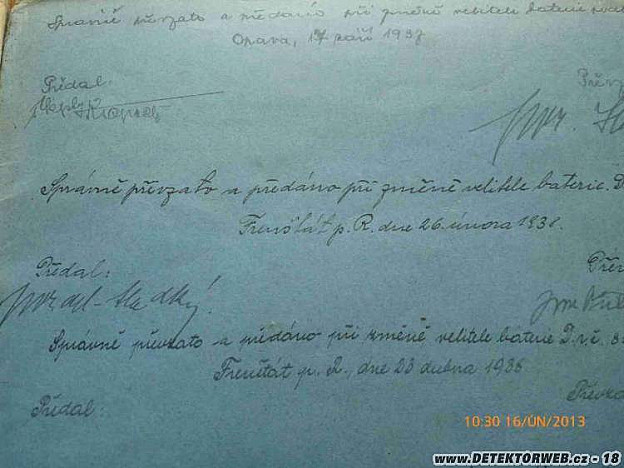 Správně převzato a předáno při změně velitele baterie
Opava, 17 září 1937
Předal:
Správně převzato a předáno při změně velitele baterie. D
Frenštát p. R. dne 26. února 1938.
Předal:
Pře
Správně převzato a předáno při změně velitele baterie D.vě.
Frenštát p. R., dne 23 dubna 1938
Předal:
Převza
10:30 16/ÚN/2013
www.DETEKTORWEB.cz - 18